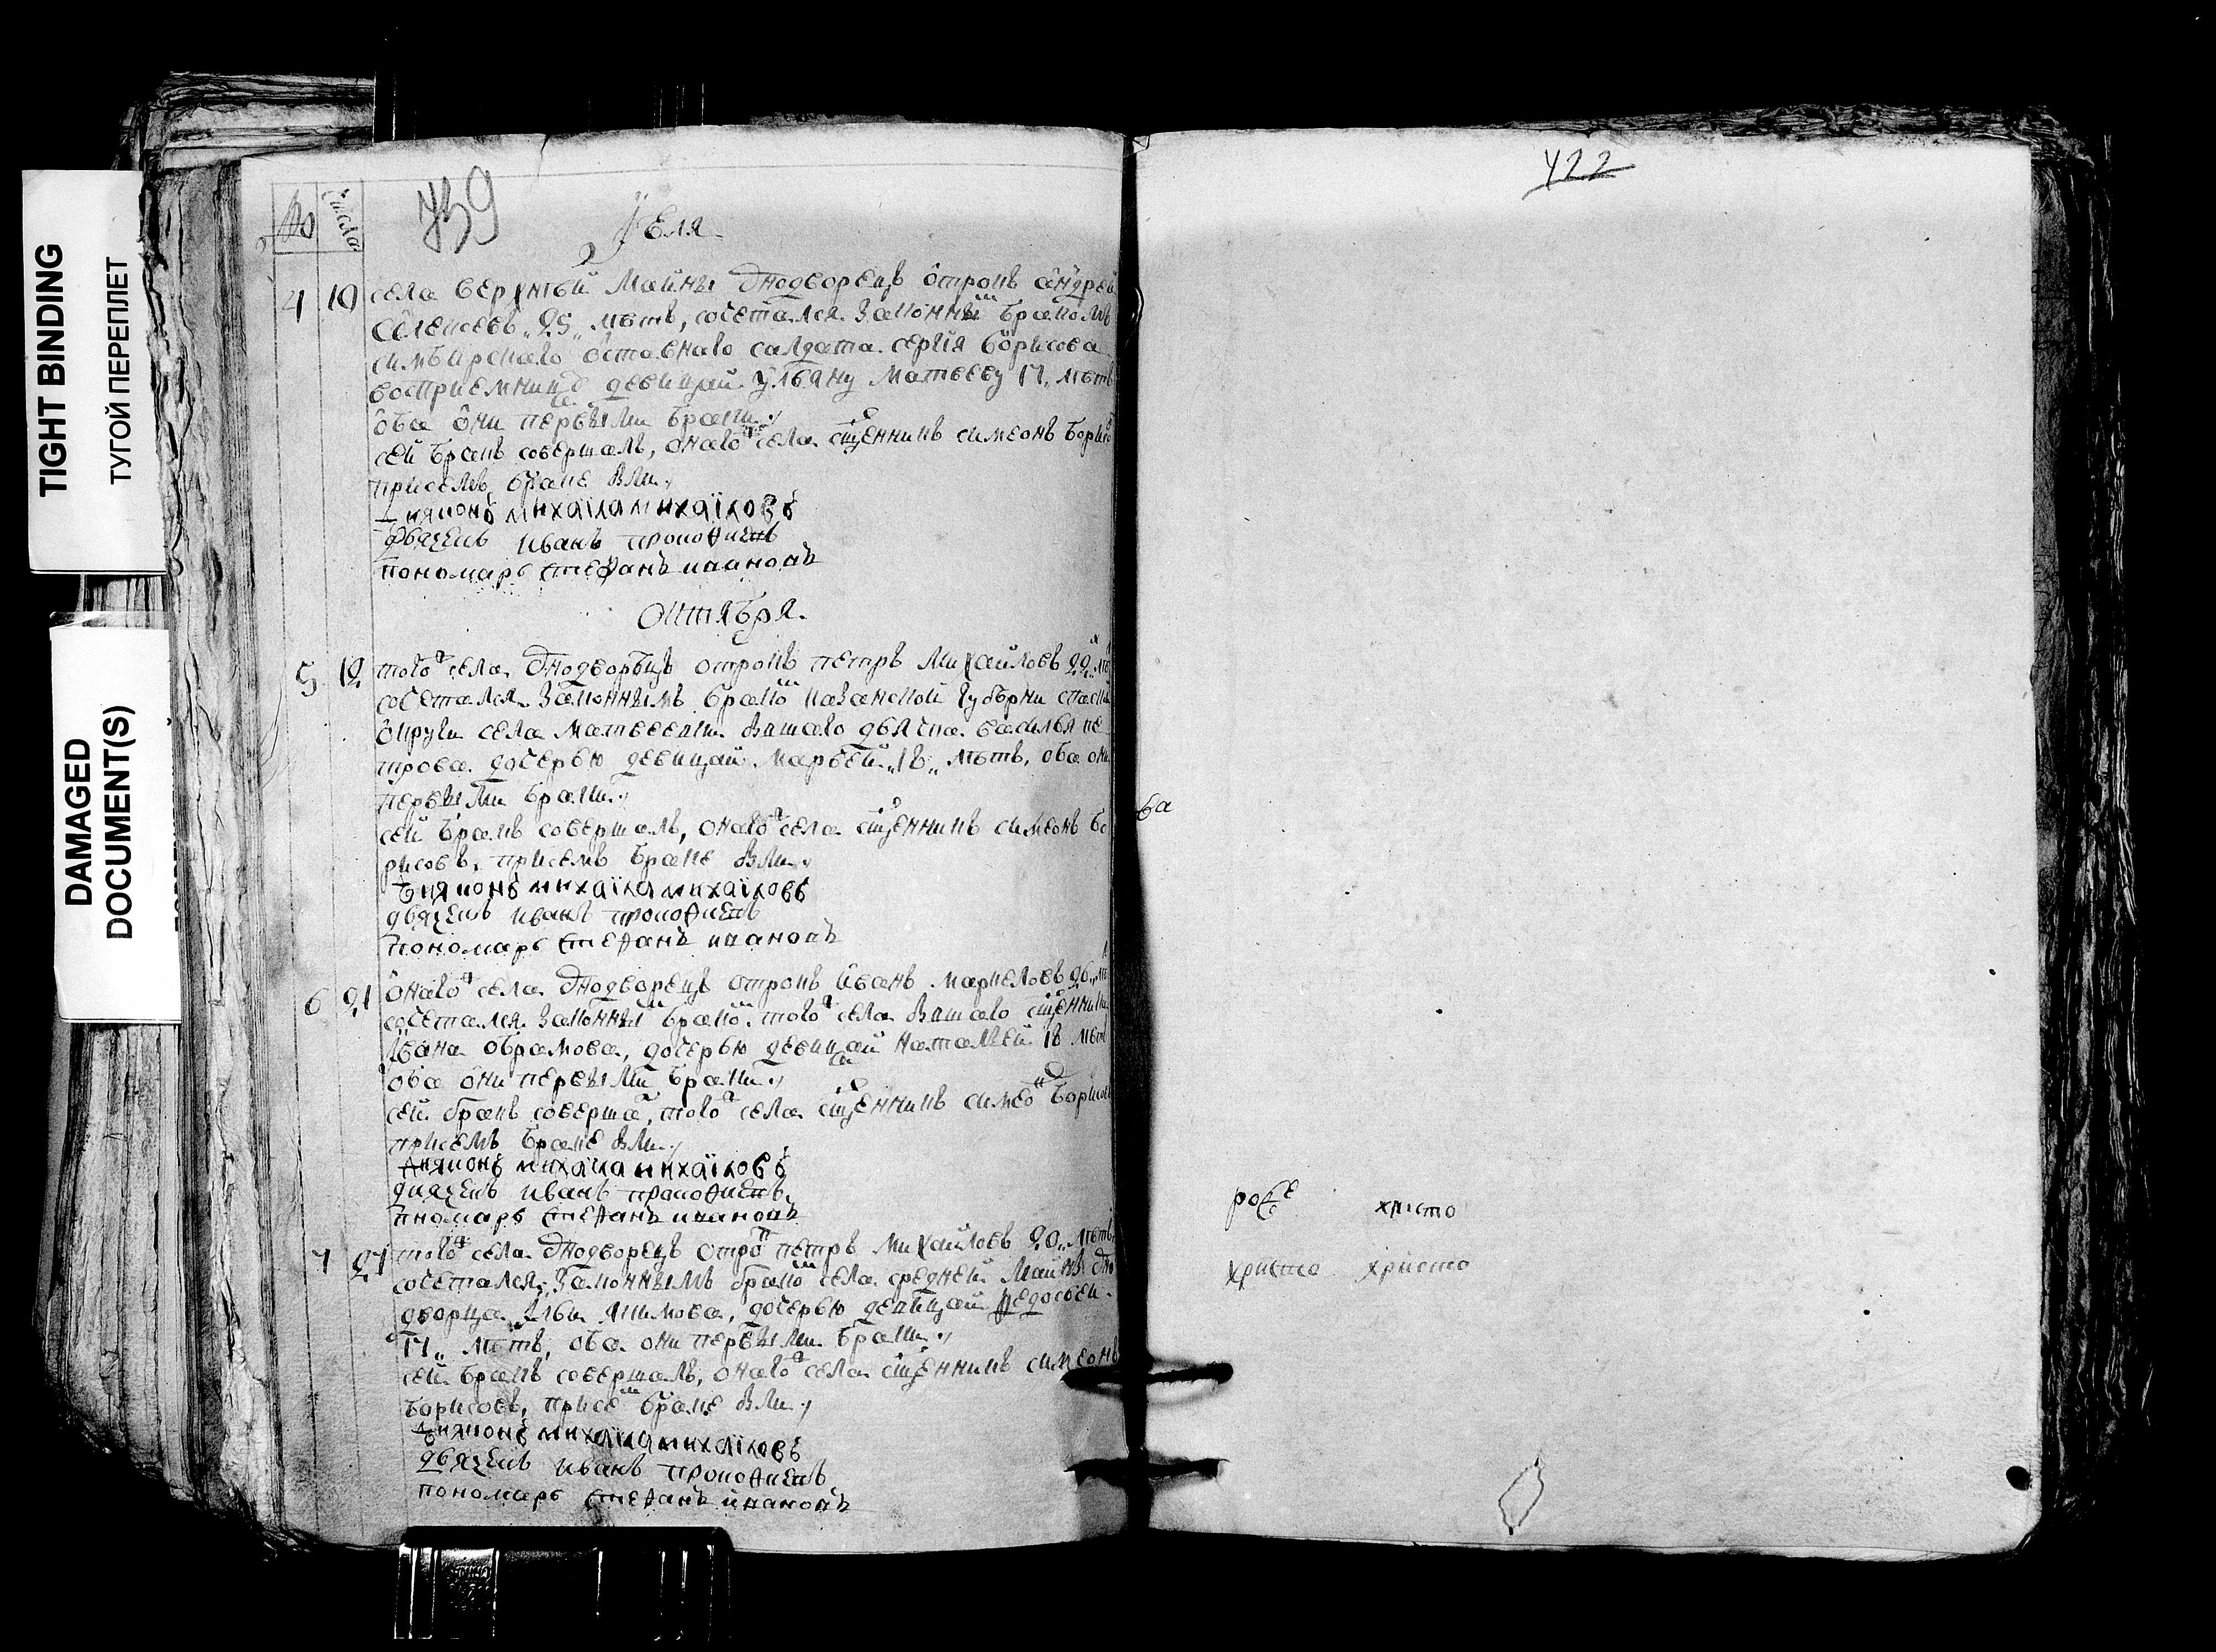 TIGHT BINDING
ТУГОЙ ПЕРЕПЛЕТ
DAMAGED
DOCUMENT(S)
№ Числа
739
Iюля
4 10 села верхней Майны однодворецъ отрокъ андрей
алексеевъ 25 летъ, сочетался законнымъ бракомъ
симбирскаго отставнаго салдата сергия борисова
восприемницо девицай ульяну матвееву 17 летъ
оба они первыми браки
сей бракъ совершалъ, онаго ж села сщенникъ симеонъ борисо
присемъ браке были
дияконъ михаїла михаїловъ
дьячекъ иванъ прокофиевъ
пономарь стефанъ ивановъ
октября
5 12 того ж села однодворецъ отрокъ петръ михайловъ 22 ле
сочетался законнымъ бракомъ казанской губерни спаскои
округи села матвеевки бывшаго дьячка василья пе
трова дочерью девицай марьей 18 летъ, оба они
первыми браки
сей бракъ совершалъ, онаго ж села сщенникъ симеонъ бо
рисовъ, присемъ браке были
дияконъ михаїла михаїловъ
дьячекъ иванъ прокофиевъ
пономарь стефанъ ивановъ
6 21 онаго ж села однодворецъ отрокъ иванъ маркеловъ 26 ле
сочетался законным браком того ж села бывшаго сщенника
ивана абрамова, дочерью девицай натальей 18 летъ
оба они первыми браки
сей бракъ совершал, того ж села сщенникъ симеон борисов
присемъ браке были
дияконъ михаїла михаїловъ
диячекъ иванъ прокофиевъ
пномарь стефанъ ивановъ
7 27 того ж села однодворецъ отрок петръ михайловъ 20 летъ
сочетался законнымъ браком села средней майны одно
дворца ильи якимова, дочерью девицай федосьей
17 летъ, оба они первыми браки
сей бракъ совершалъ, онаго ж села сщенникъ симеонъ
борисовъ, присем браке были
дияконъ михаїла михаїловъ
дьячекъ иванъ прокофиевъ
пономарь стефанъ ивановъ
422
ва
христо
христо христо